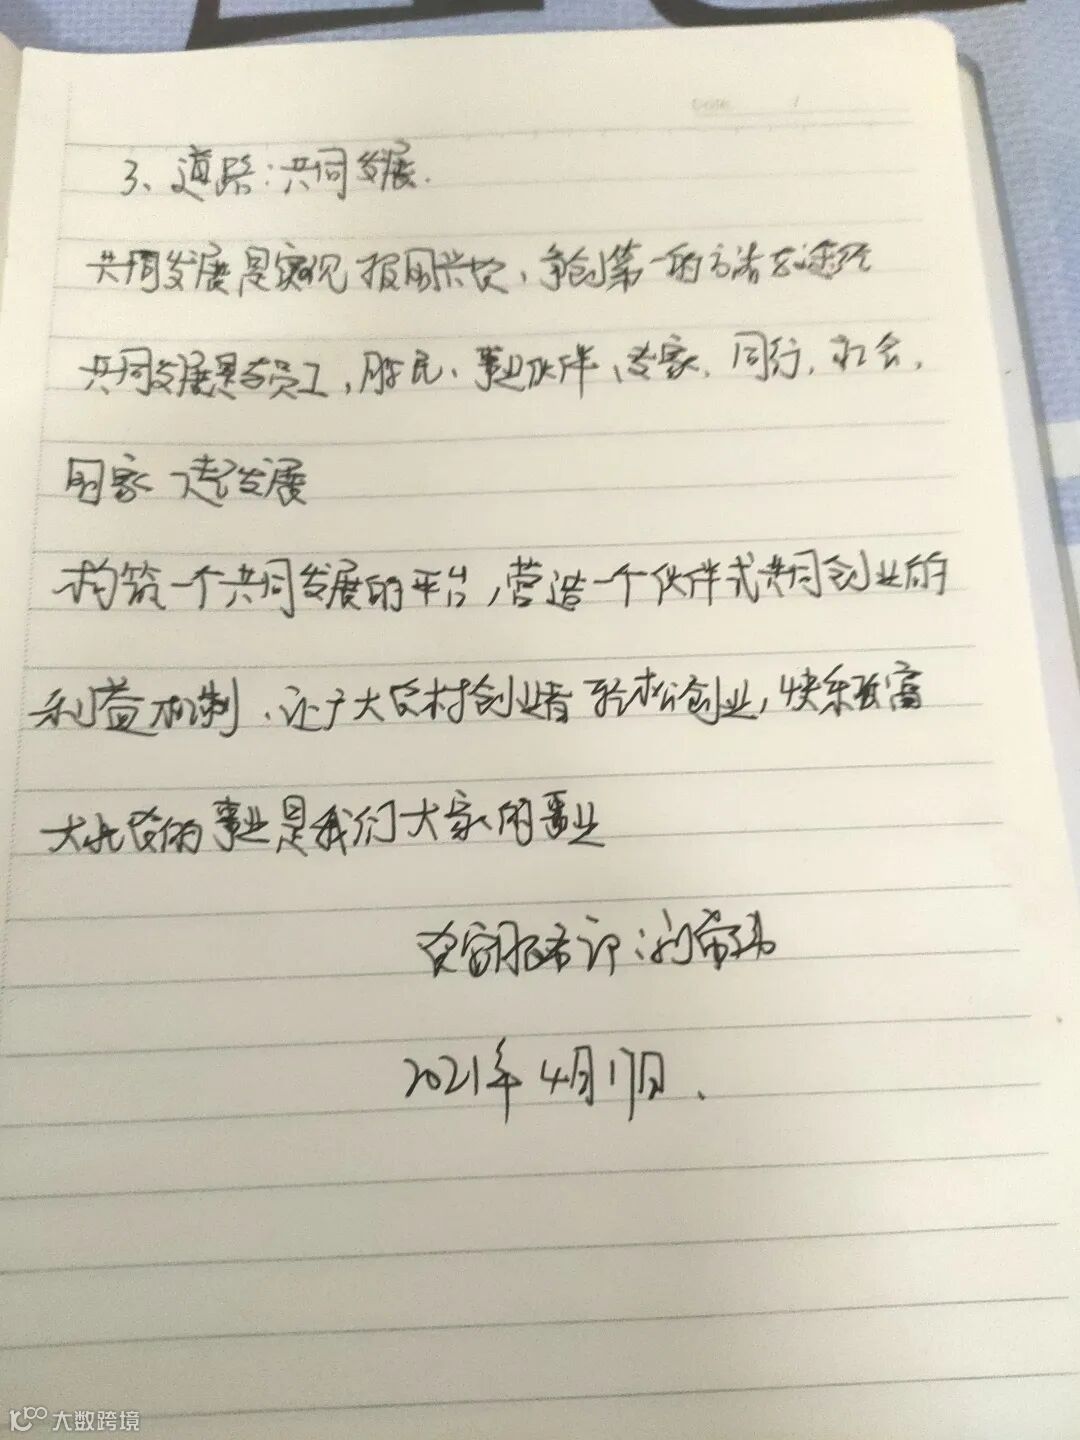 Date /
3、道路:共同发展.
共同发展是实现报国兴农、争创第一的方法与途径
共同发展是与员工,股民、事业伙伴、专家、同行,社会,
国家一起发展
构筑一个共同发展的平台,营造一个伙伴式共同创业的
利益机制、让广大农村创业者轻松创业,快乐致富
大北农的事业是我们大家的事业
服务部:刘
2021年4月17日.
大数跨境